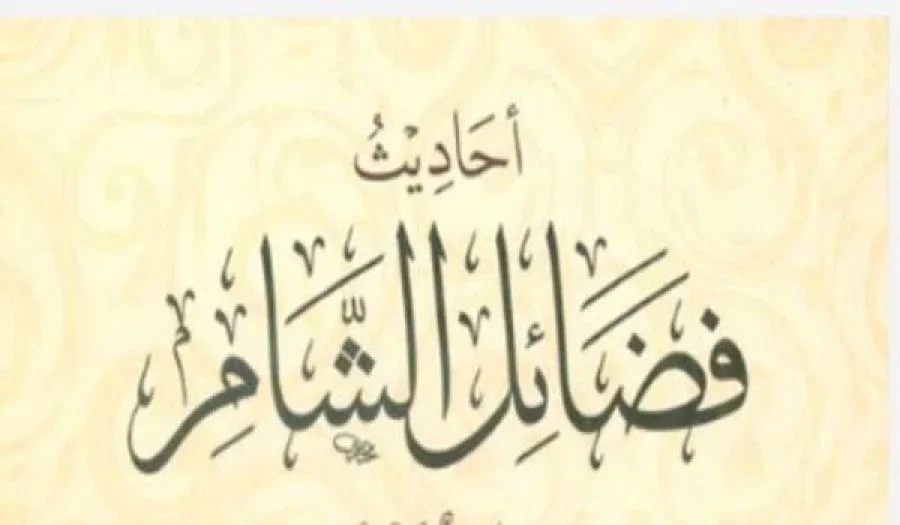 أحَادِيْثُ
فَضَائِلِ الشَّامِ